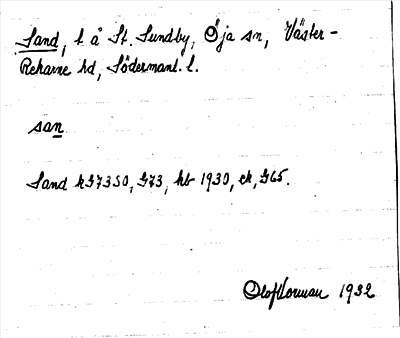 Sand, t å St. Sundby, Öja sn, Väster-
Rekarne hd, Södermanl. l.
san
Sand kG7350, G73, hb 1930, ek, G65.
Olof Norman 1932